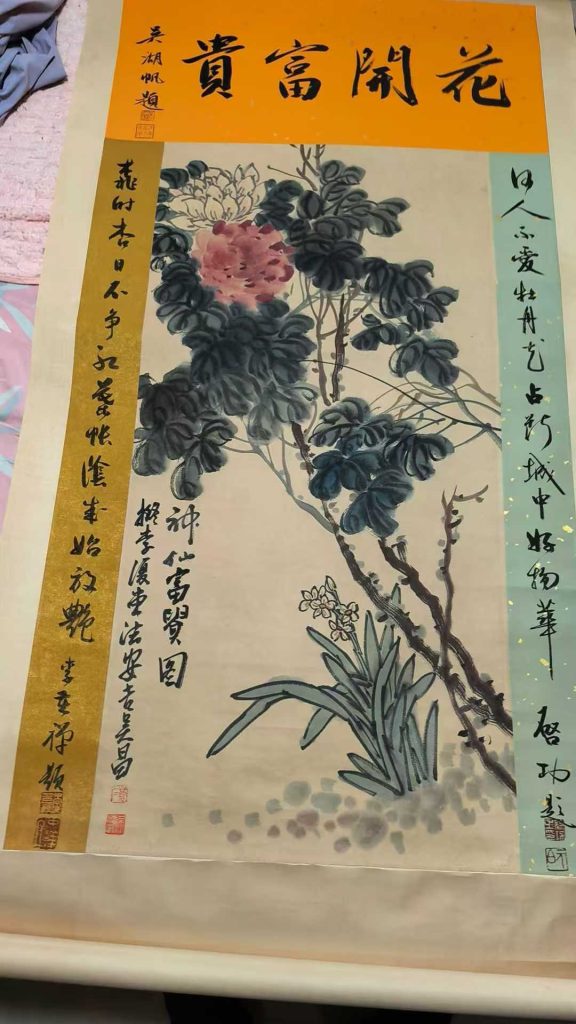 花開富貴
吳湖帆題
何人不愛牡丹花占斷城中好物華
啓功題
神仙富貴圖
擬李復堂法安吉吳昌
時杏日不爭紅葉帐陰成始放艷
李苦禪題